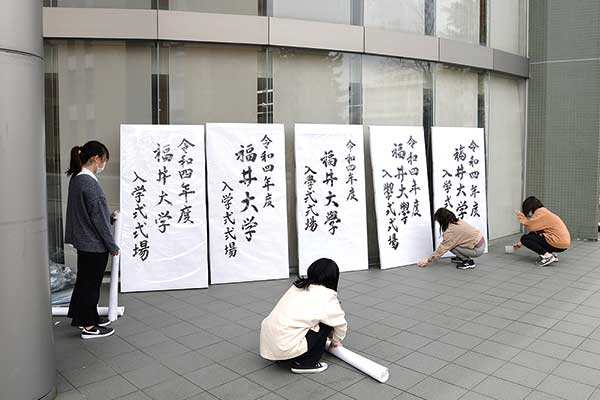 令和四年度
福井大学
入学式式場
令和四年度
福井大学
入学式式場
令和四年度
福井大學
入學式式場
令和四年度
福井大學
入學式式場
令和四年度
福井大学
入学式式場